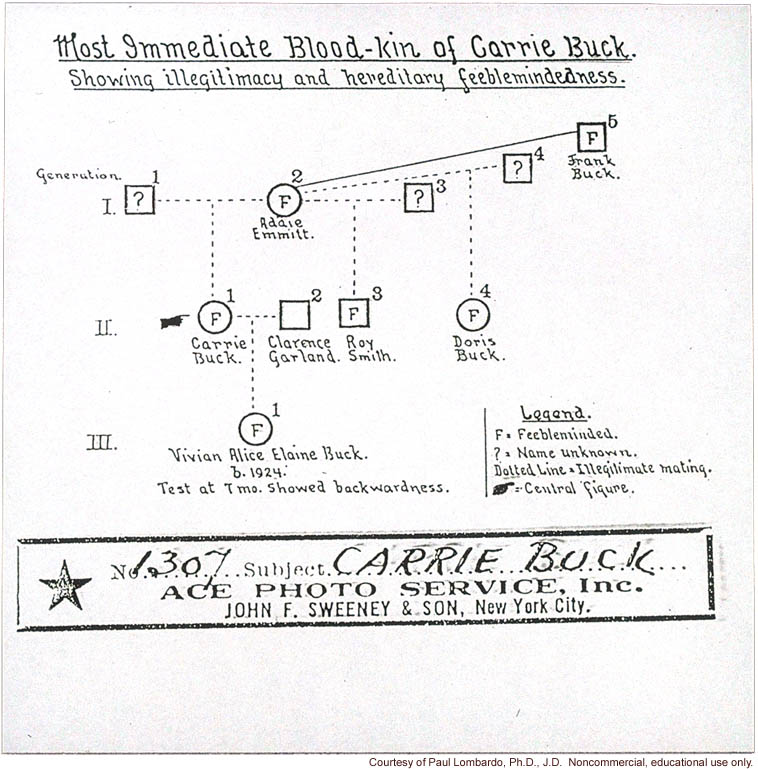 Most Immediate Blood-kin of Carrie Buck.
Showing illegitimacy and hereditary feeblemindedness.
Generation.
1
2
3
4
5
I.
?
F
?
?
F
Adaie
Emmitt.
Frank
Buck.
II.
1
2
3
4
F
F
F
Carrie
Buck.
Clarence
Garland.
Roy
Smith.
Doris
Buck.
III.
1
F
Vivian Alice Elaine Buck.
b. 1924.
Test at 7 mo. showed backwardness.
Legend.
F = Feebleminded.
? = Name unknown.
Dotted Line = Illegitimate mating.
= Central figure.
No. 1307 Subject CARRIE BUCK
ACE PHOTO SERVICE, Inc.
JOHN F. SWEENEY & SON, New York City.
Courtesy of Paul Lombardo, Ph.D., J.D. Noncommercial, educational use only.